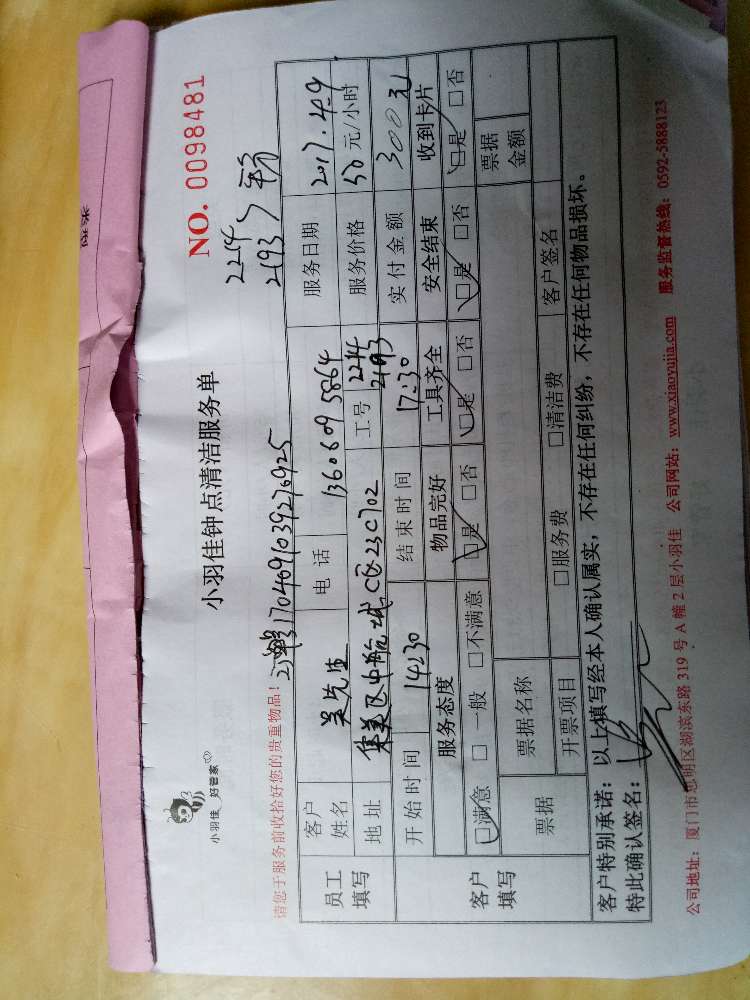 小羽佳 好管家
小羽佳钟点清洁服务单
NO. 0098481
2214
2193
请您于服务前收拾好您的贵重物品!
170409103927692​5
员工填写 客户姓名 吴先生 电话 13606095864 服务日期 2017.4.9
地址 集美区中航城C区23C702 工号 2214 2193 服务价格 50 元/小时
开始时间 14:30 结束时间 17:30 实付金额 300元
客户填写 服务态度 物品完好 工具齐全 安全结束 收到卡片
☑满意 □一般 □不满意 ☑是 □否 ☑是 □否 ☑是 □否 ☑是 □否
票据 票据名称 票据金额
开票项目 □服务费 □清洁费 客户签名
客户特别承诺:以上填写经本人确认属实,不存在任何纠纷,不存在任何物品损坏。
特此确认签名:
公司地址:厦门市思明区湖滨东路 319 号 A 幢 2 层小羽佳 公司网站:www.xiaoyujia.com 服务监督热线:0592-5888123